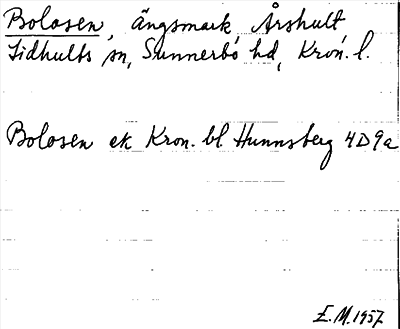 Bolosen, ängsmark Årshult
Lidhults sn, Sunnerbo hd, Kron. l.
Bolosen ek Kron. bl Hunnsberg 4D9a
E. M. 1957